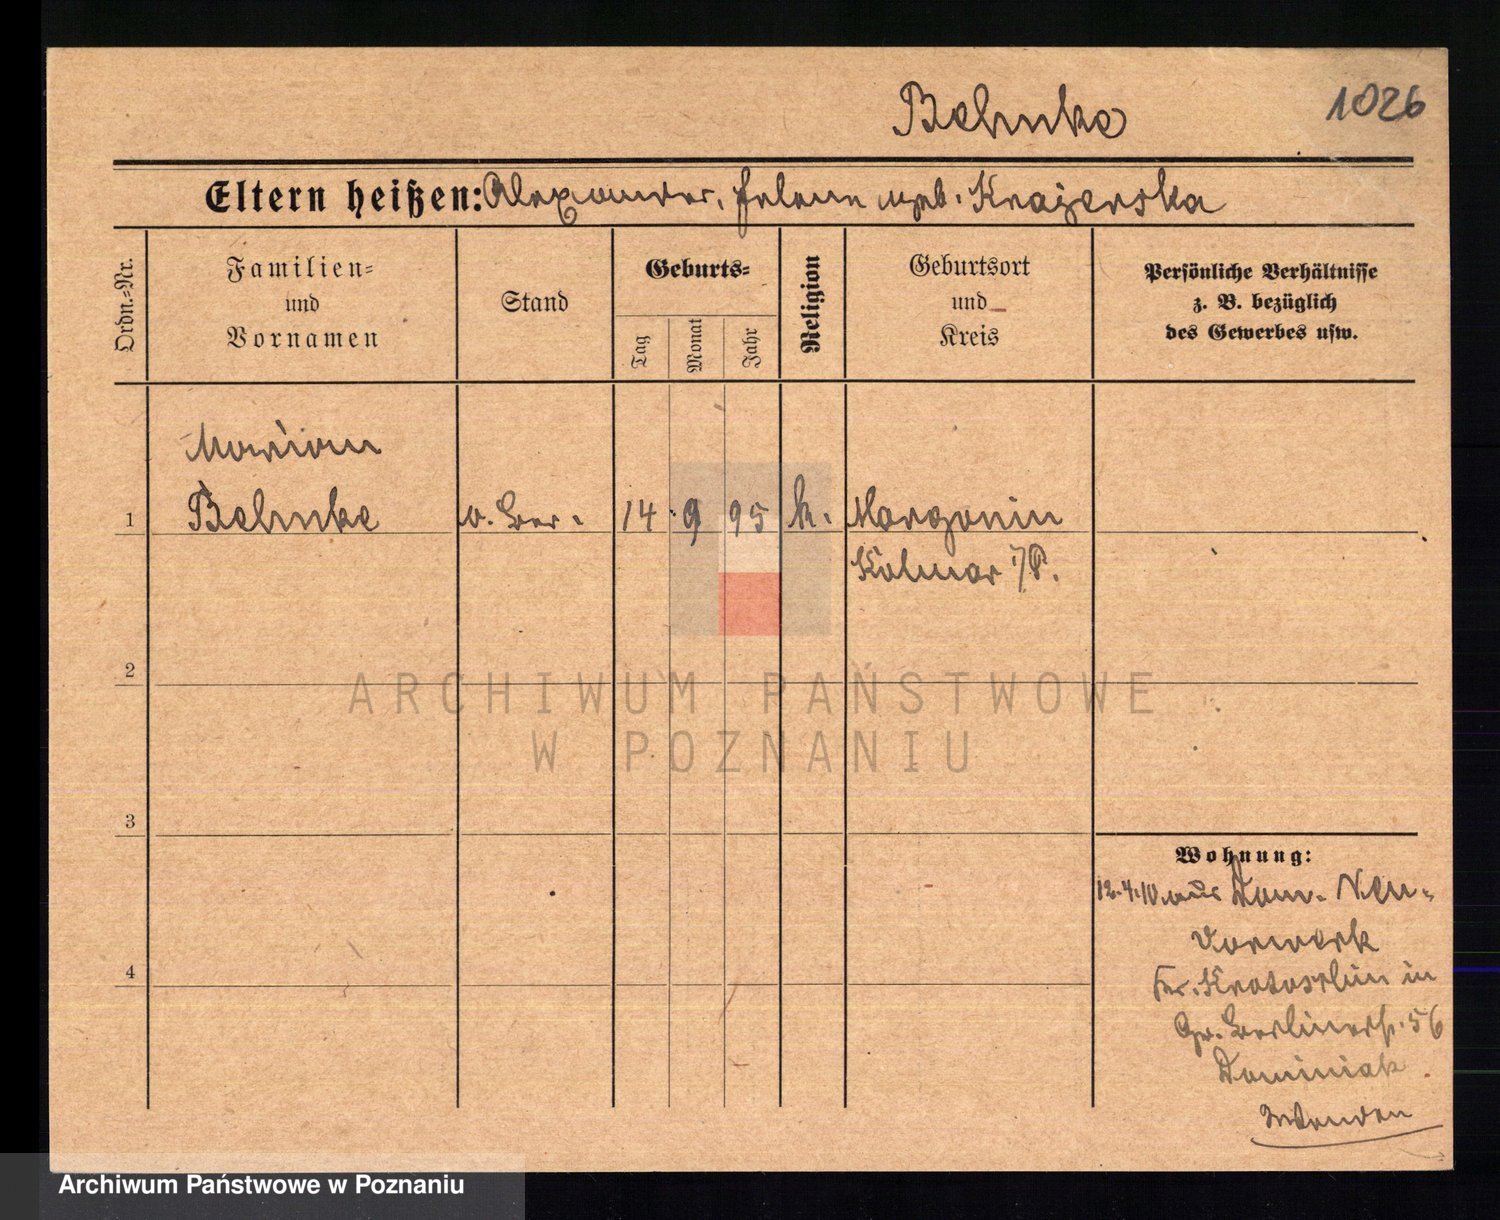 Behnke
1026
Eltern heißen: Alexander, Helene geb. Krajewska
Ordn.-Nr.
Familien-
und
Vornamen
Stand
Geburts-
Tag
Monat
Jahr
Religion
Geburtsort
und
Kreis
Persönliche Verhältnisse
z. B. bezüglich
des Gewerbes usw.
Marian
1 Behnke 14 9 95 k. Margonin
Kolmar i/P.
2
ARCHIWUM PAŃSTWOWE
W POZNANIU
3
Wohnung:
12.4.10 aus Dom. Neu-
vorwerk
Kr. Krotoschin in
Gr. Berlinerstr. 56
Dominiak
4
Wenden
Archiwum Państwowe w Poznaniu